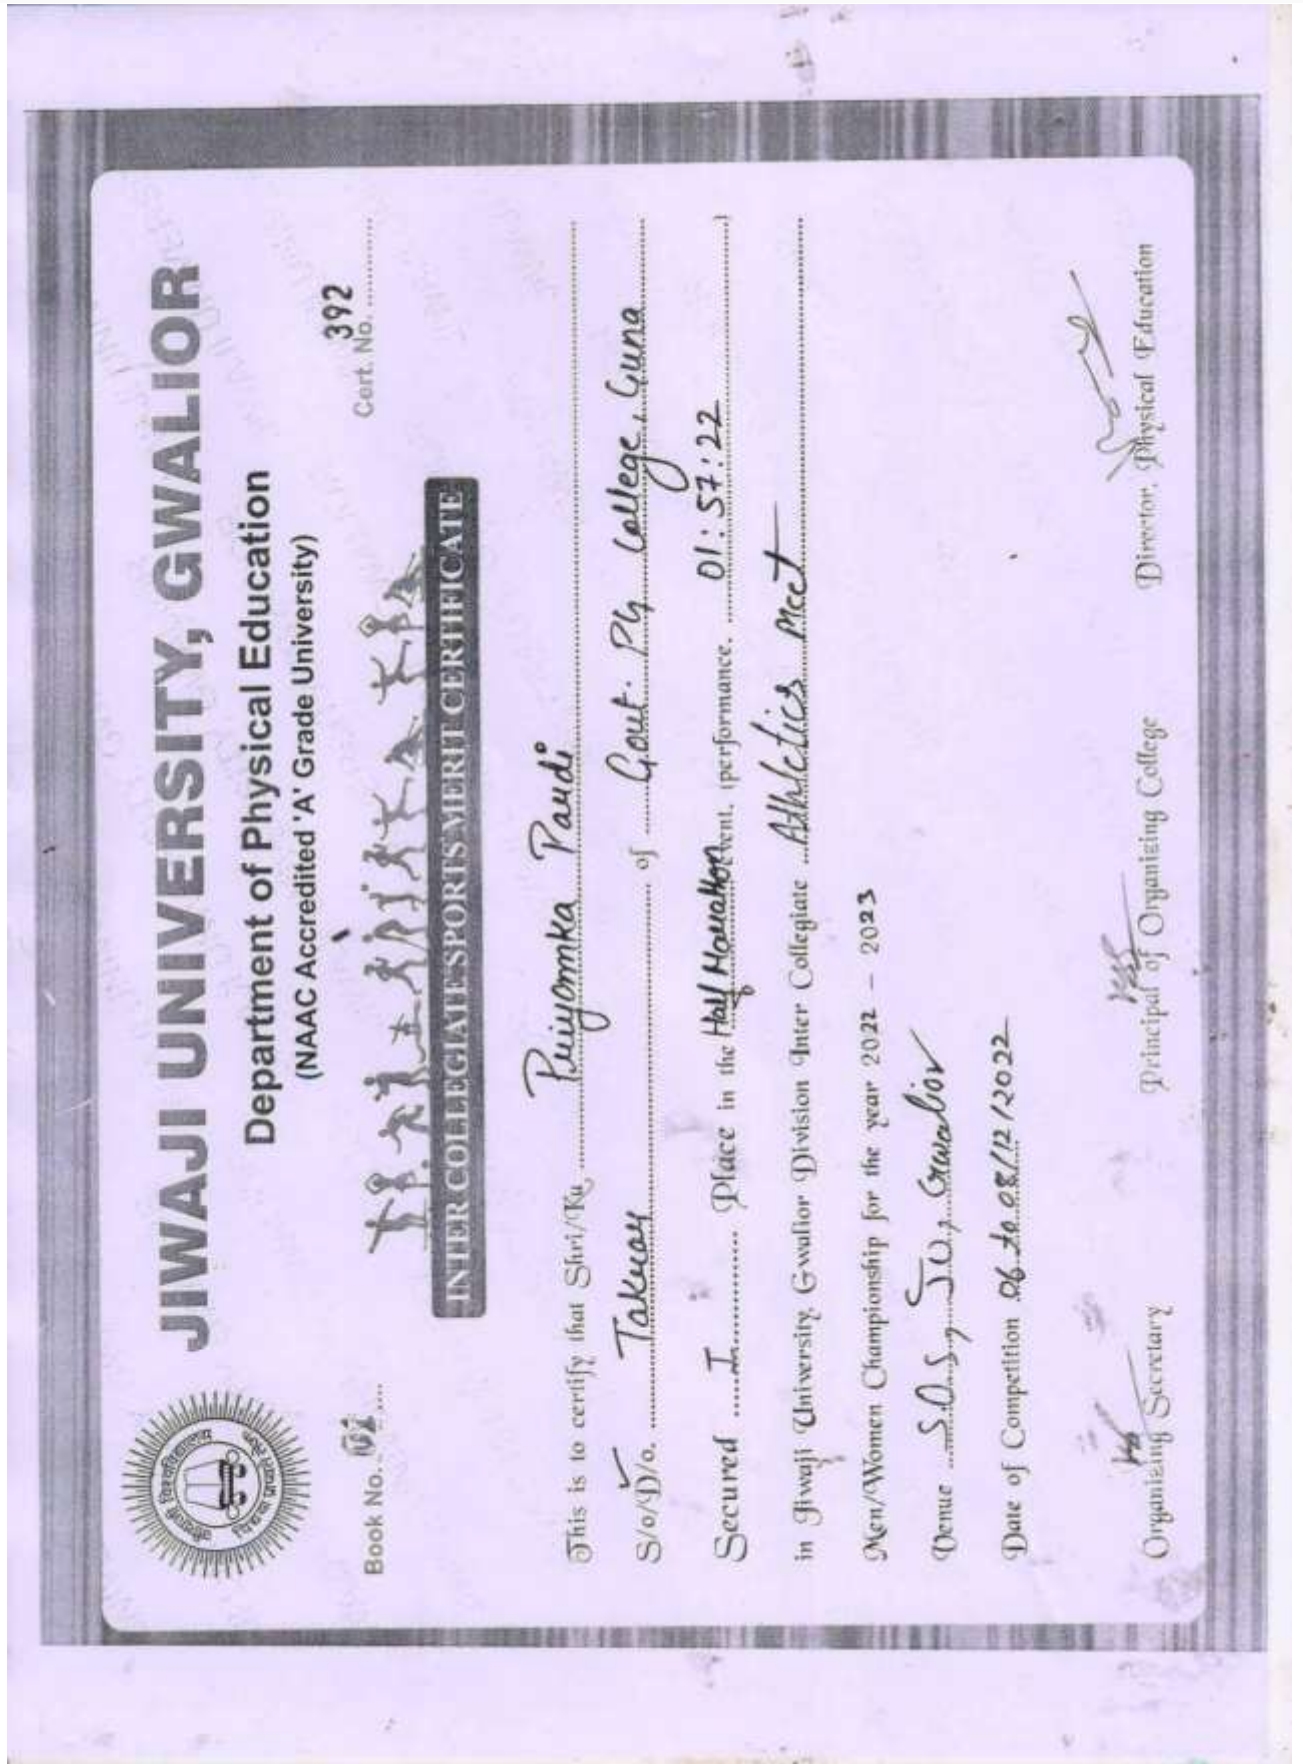 JIWAJI UNIVERSITY, GWALIOR
Department of Physical Education
(NAAC Accredited 'A' Grade University)
Book No. 01
Cert. No. 392
INTER COLLEGIATE SPORTS MERIT CERTIFICATE
This is to certify that Shri/Ku Priyamka Pardi
S/o/D/o. Takur of Govt. PG College, Guna
Secured I Place in the Half Marathon event. (performance. 01:57:22 )
in Jiwaji University, Gwalior Division Inter Collegiate Athletics Meet
Men/Women Championship for the year 2022 – 2023
Venue S.O.S, J.U, Gwalior
Date of Competition 06 to 08/12/2022
Organizing Secretary
Principal of Organizing College
Director, Physical Education